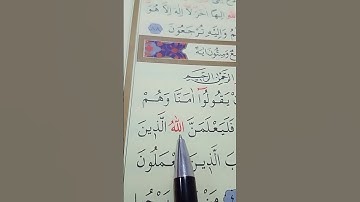 إِلٰهًا اٰخَرَ لَٓا اِلٰهَ اِلَّا هُوَ
وَاِلَيْهِ تُرْجَعُونَ ٨٨
وَسِتُّونَ اٰيَةً
الرَّحْمٰنِ الرَّحِيمِ
يَقُولُٓوا اٰمَنَّا وَهُمْ
فَلَيَعْلَمَنَّ اللّٰهُ الَّذ۪ينَ
الَّذ۪ينَ يَعْمَلُونَ